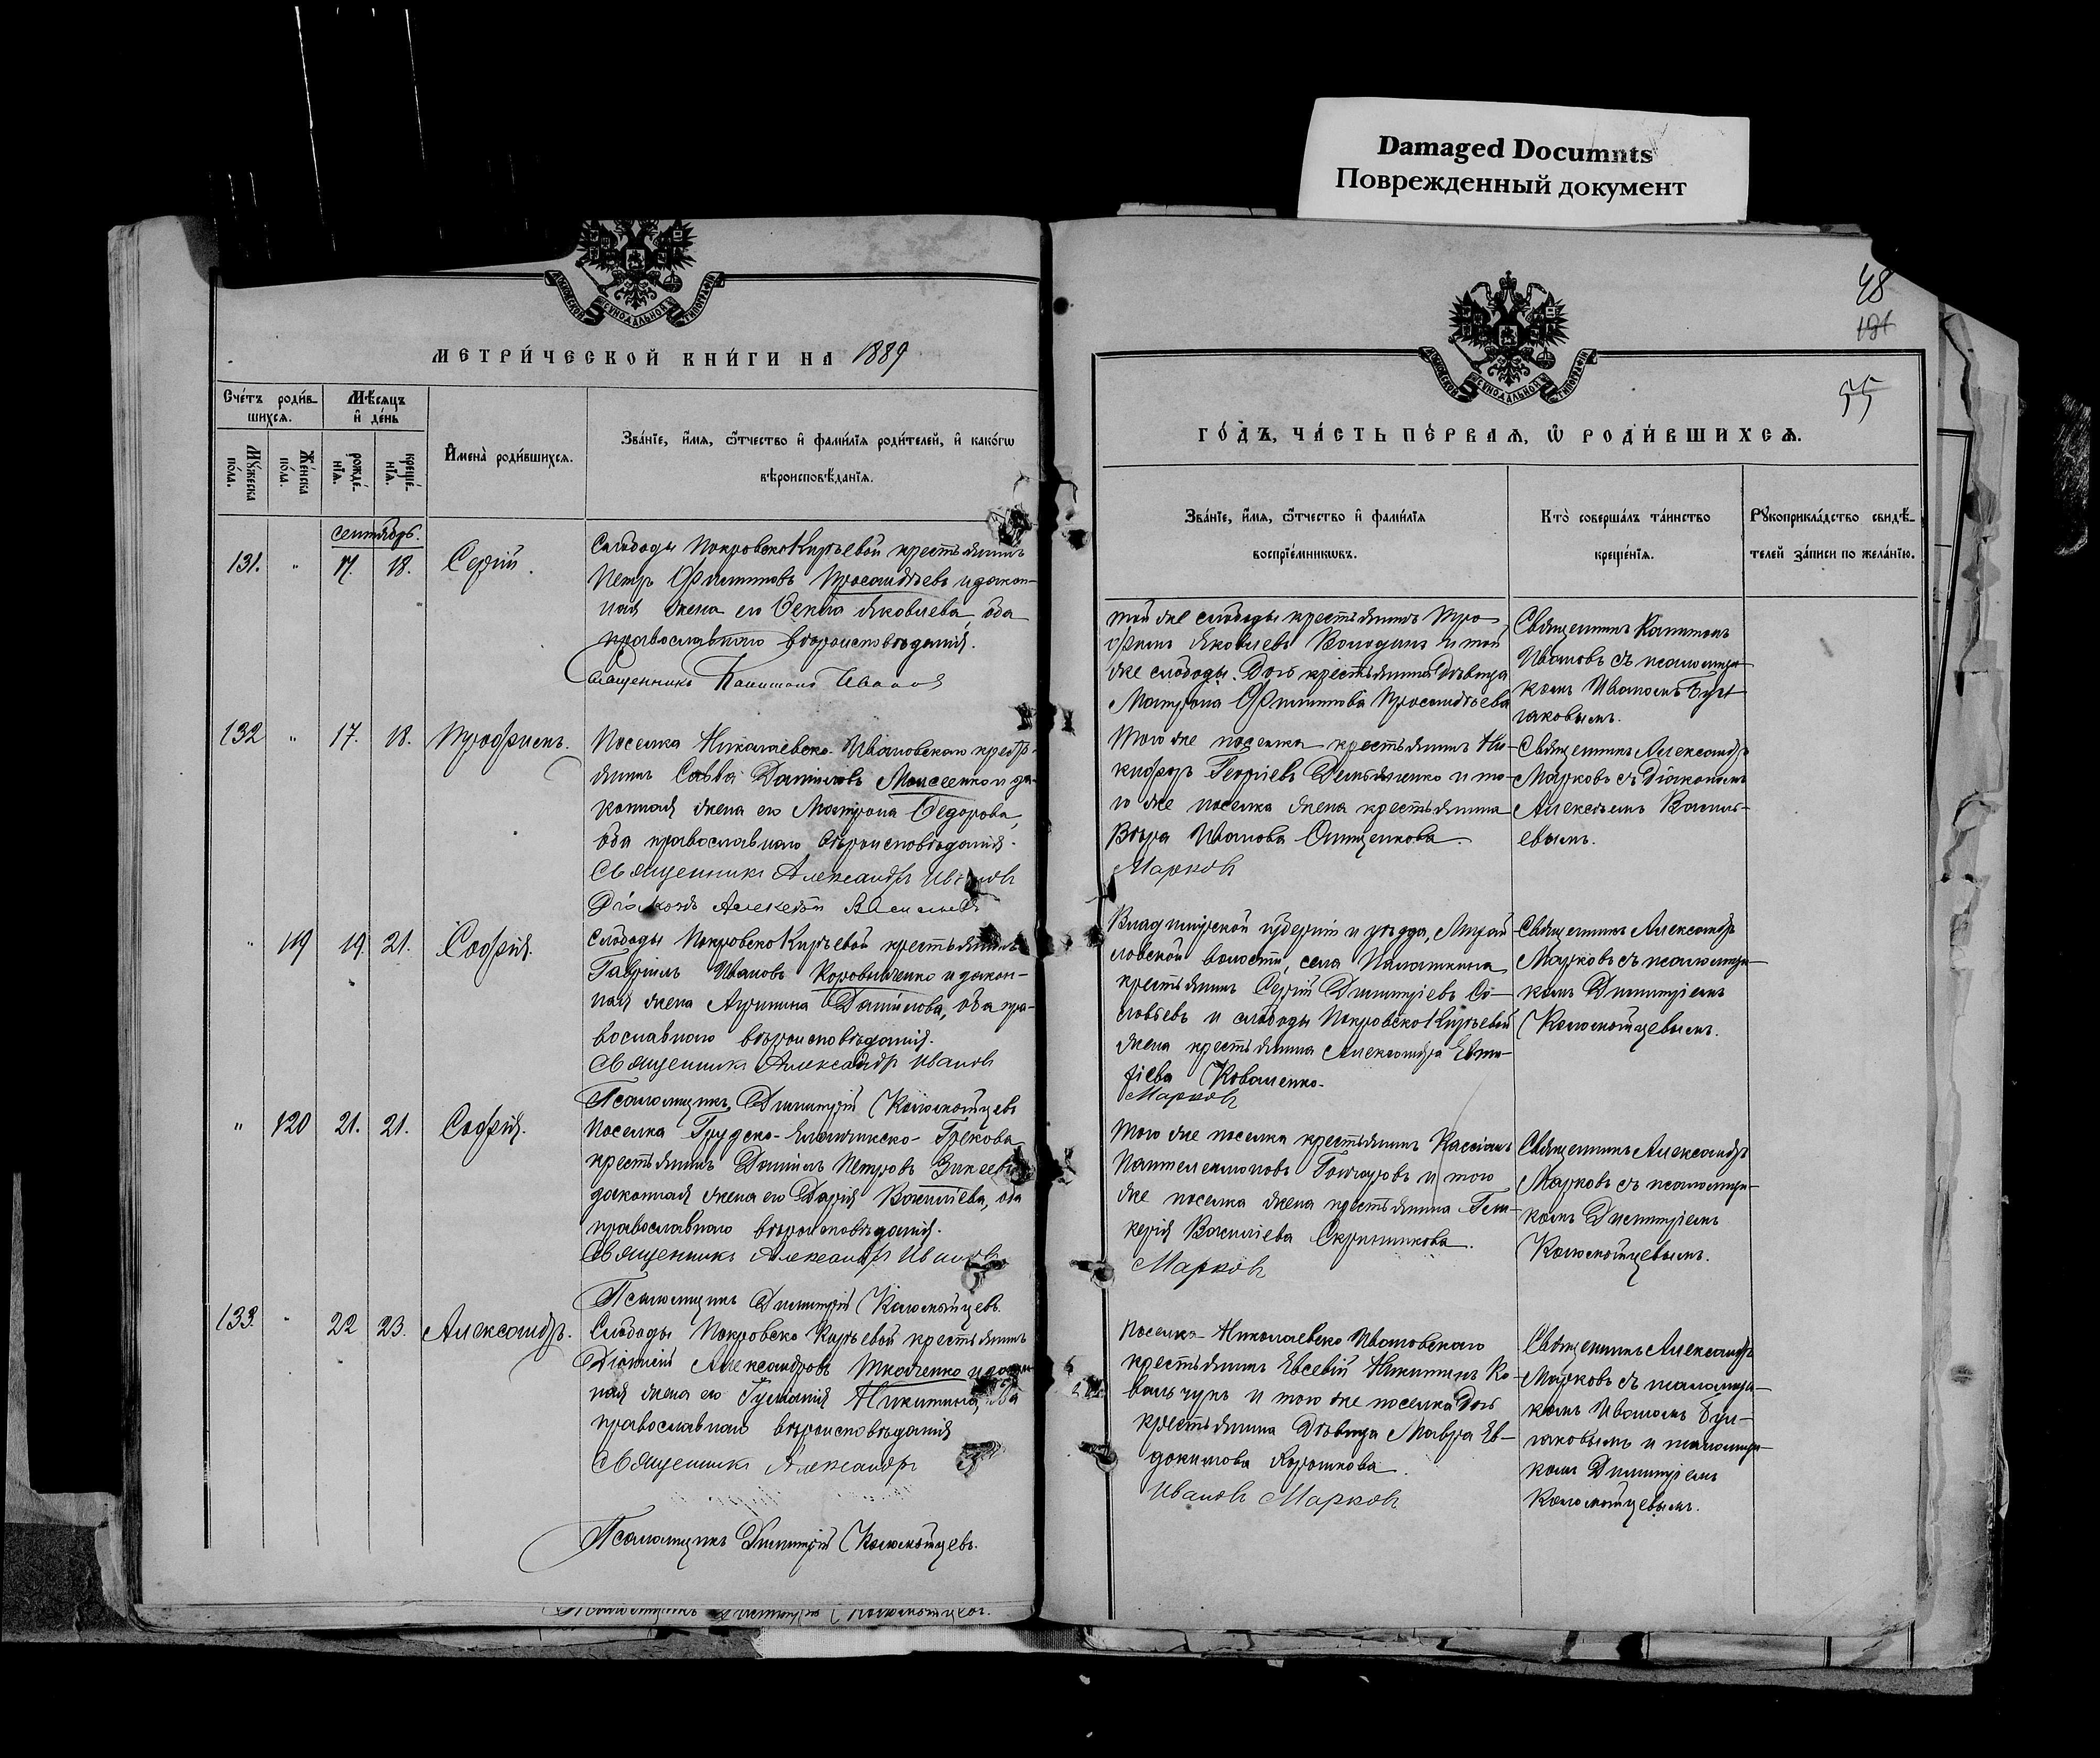 Damaged Documnts
Поврежденный документ
МЕТРИ́ЧЕСКОЙ КНИ́ГИ НА 1889
Сче́тъ роди́в-
шихсѧ.
Мѣ́сѧцъ
и҆ де́нь
Мꙋ́жеска
по́ла.
Же́нска
по́ла.
рожде́-
нїѧ.
креще́-
нїѧ.
И҆мена̀ роди́вшихсѧ.
Зва́нїе, и҆́мѧ, ѻ҆́тчество и҆ фами́лїѧ роди́телей, и҆ како́гѡ
вѣроисповѣ́данїѧ.
сентябрь.
131. " 17. 18. Сергій.
Слободы Покровско Кирѣевой крестьянинъ
Петръ Филипповъ и закон-
ная жена его Ѳекла Яковлева, оба
православнаго вѣроисповѣданія.
Священникъ Капитонъ Ивановъ
132 " 17. 18. Трофимъ.
Поселка Николаевско-Ивановскаго кресть-
янинъ Савва Даниловъ Моисеенко и за-
конная жена его Матрона Ѳедорова,
оба православнаго вѣроисповѣданія.
Священникъ Александръ Ивановъ
Діаконъ Алексѣй Васильевъ
" 119 19. 21. Софія.
Слободы Покровско Кирѣевой крестьянинъ
Гавріилъ Ивановъ Коровниченко и закон-
ная жена Агриппина Данилова, оба пра-
вославнаго вѣроисповѣданія.
Священникъ Александръ Ивановъ
Псаломщикъ Димитрій Коломойцевъ
" 120 21. 21. Софія.
Поселка Грузско-Еланчикско-Грекова
крестьянинъ Даніилъ Петровъ
законная жена его Дарія Васильева, оба
православнаго вѣроисповѣданія.
Священникъ Александръ Ивановъ
Псаломщикъ Димитрій Коломойцевъ.
133. " 22 23. Александръ.
Слободы Покровско Кирѣевой крестьянинъ
Діонисій Александровъ Ткаченко и закон-
ная жена его Іуліанія Никитина, оба
православнаго вѣроисповѣданія
Священникъ Александръ
Псаломщикъ Димитрій Коломойцевъ.
48
55
ГО́ДЪ, ЧА́СТЬ ПЕ́РВАѦ, Ѡ҆ РОДИ́ВШИХСѦ.
Зва́нїе, и҆́мѧ, ѻ҆́тчество и҆ фами́лїѧ
воспрїе́мникѡвъ.
Кто̀ соверша́лъ та́инство
креще́нїѧ.
Рꙋкоприкла́дство свидѣ́-
телей за́писи по жела́нїю.
той же слободы крестьянинъ Тро-
фимъ Яковлевъ Володинъ и той
же слободы дочь крестьянина дѣвица
Матрона Филиппова
Священникъ Капитонъ
Ивановъ съ псаломщи-
комъ Иваномъ Бул-
гаковымъ.
Того же поселка крестьянинъ Ни-
кифоръ Георгіевъ Демьяненко и то-
го же поселка жена крестьянина
Вѣра Иванова Онищенкова.
Марковъ
Священникъ Александръ
Марковъ съ Діакономъ
Алексѣемъ Василь-
евымъ.
Владимірской губерніи и уѣзда,
ловской волости, села
крестьянинъ Сергій Димитріевъ Со-
ловьевъ и слободы Покровско Кирѣевой
жена крестьянина Александра Евти-
фіева Коваленко.
Марковъ
Священникъ Александръ
Марковъ съ псаломщи-
комъ Димитріемъ
Коломойцевымъ.
Того же поселка крестьянинъ Кассіанъ
Пантелеимоновъ Гончаровъ и того
же поселка жена крестьянина Гли-
керія Васильева Скрипникова.
Марковъ
Священникъ Александръ
Марковъ съ псаломщи-
комъ Димитріемъ
Коломойцевымъ.
Поселка Николаевско Ивановскаго
крестьянинъ Евсевій Никитинъ Ко-
вальчукъ и того же поселка дочь
крестьянина дѣвица Мавра Ев-
докимова Ярошкова.
Ивановъ Марковъ
Священникъ Александръ
Марковъ съ псаломщи-
комъ Иваномъ Бул-
гаковымъ и псаломщи-
комъ Димитріемъ
Коломойцевымъ.